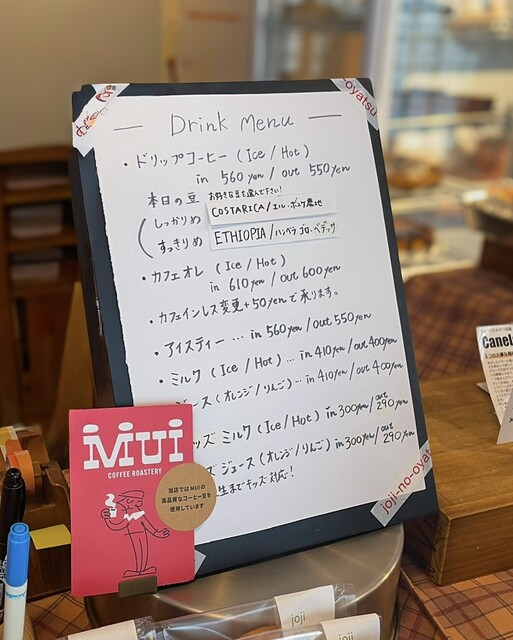 oyatsu
— Drink Menu —
・ドリップコーヒー (Ice / Hot)
in 560 yen / out 550 yen
本日の豆 お好きな豆を選んで下さい!
しっかりめ COSTARICA / エル・ボスケ農地
すっきりめ ETHIOPIA / ハンベラ ゴロ・ベデッサ
・カフェオレ (Ice / Hot)
in 610 yen / out 600 yen
・カフェインレス変更+50yenで承ります。
・アイスティー … in 560 yen / out 550 yen
・ミルク (Ice / Hot) … in 410 yen / out 400 yen
ジュース (オレンジ/りんご) … in 410 yen / out 400 yen
ッズ ミルク (Ice / Hot) in 300 yen / out 290 yen
ズ ジュース (オレンジ/りんご) in 300 yen / out 290 yen
生までキッズ対応!
joji-no-oyat
MUI
COFFEE ROASTERY
当店ではMUIの
高品質なコーヒー豆を
使用しています
Canel
joji
joji